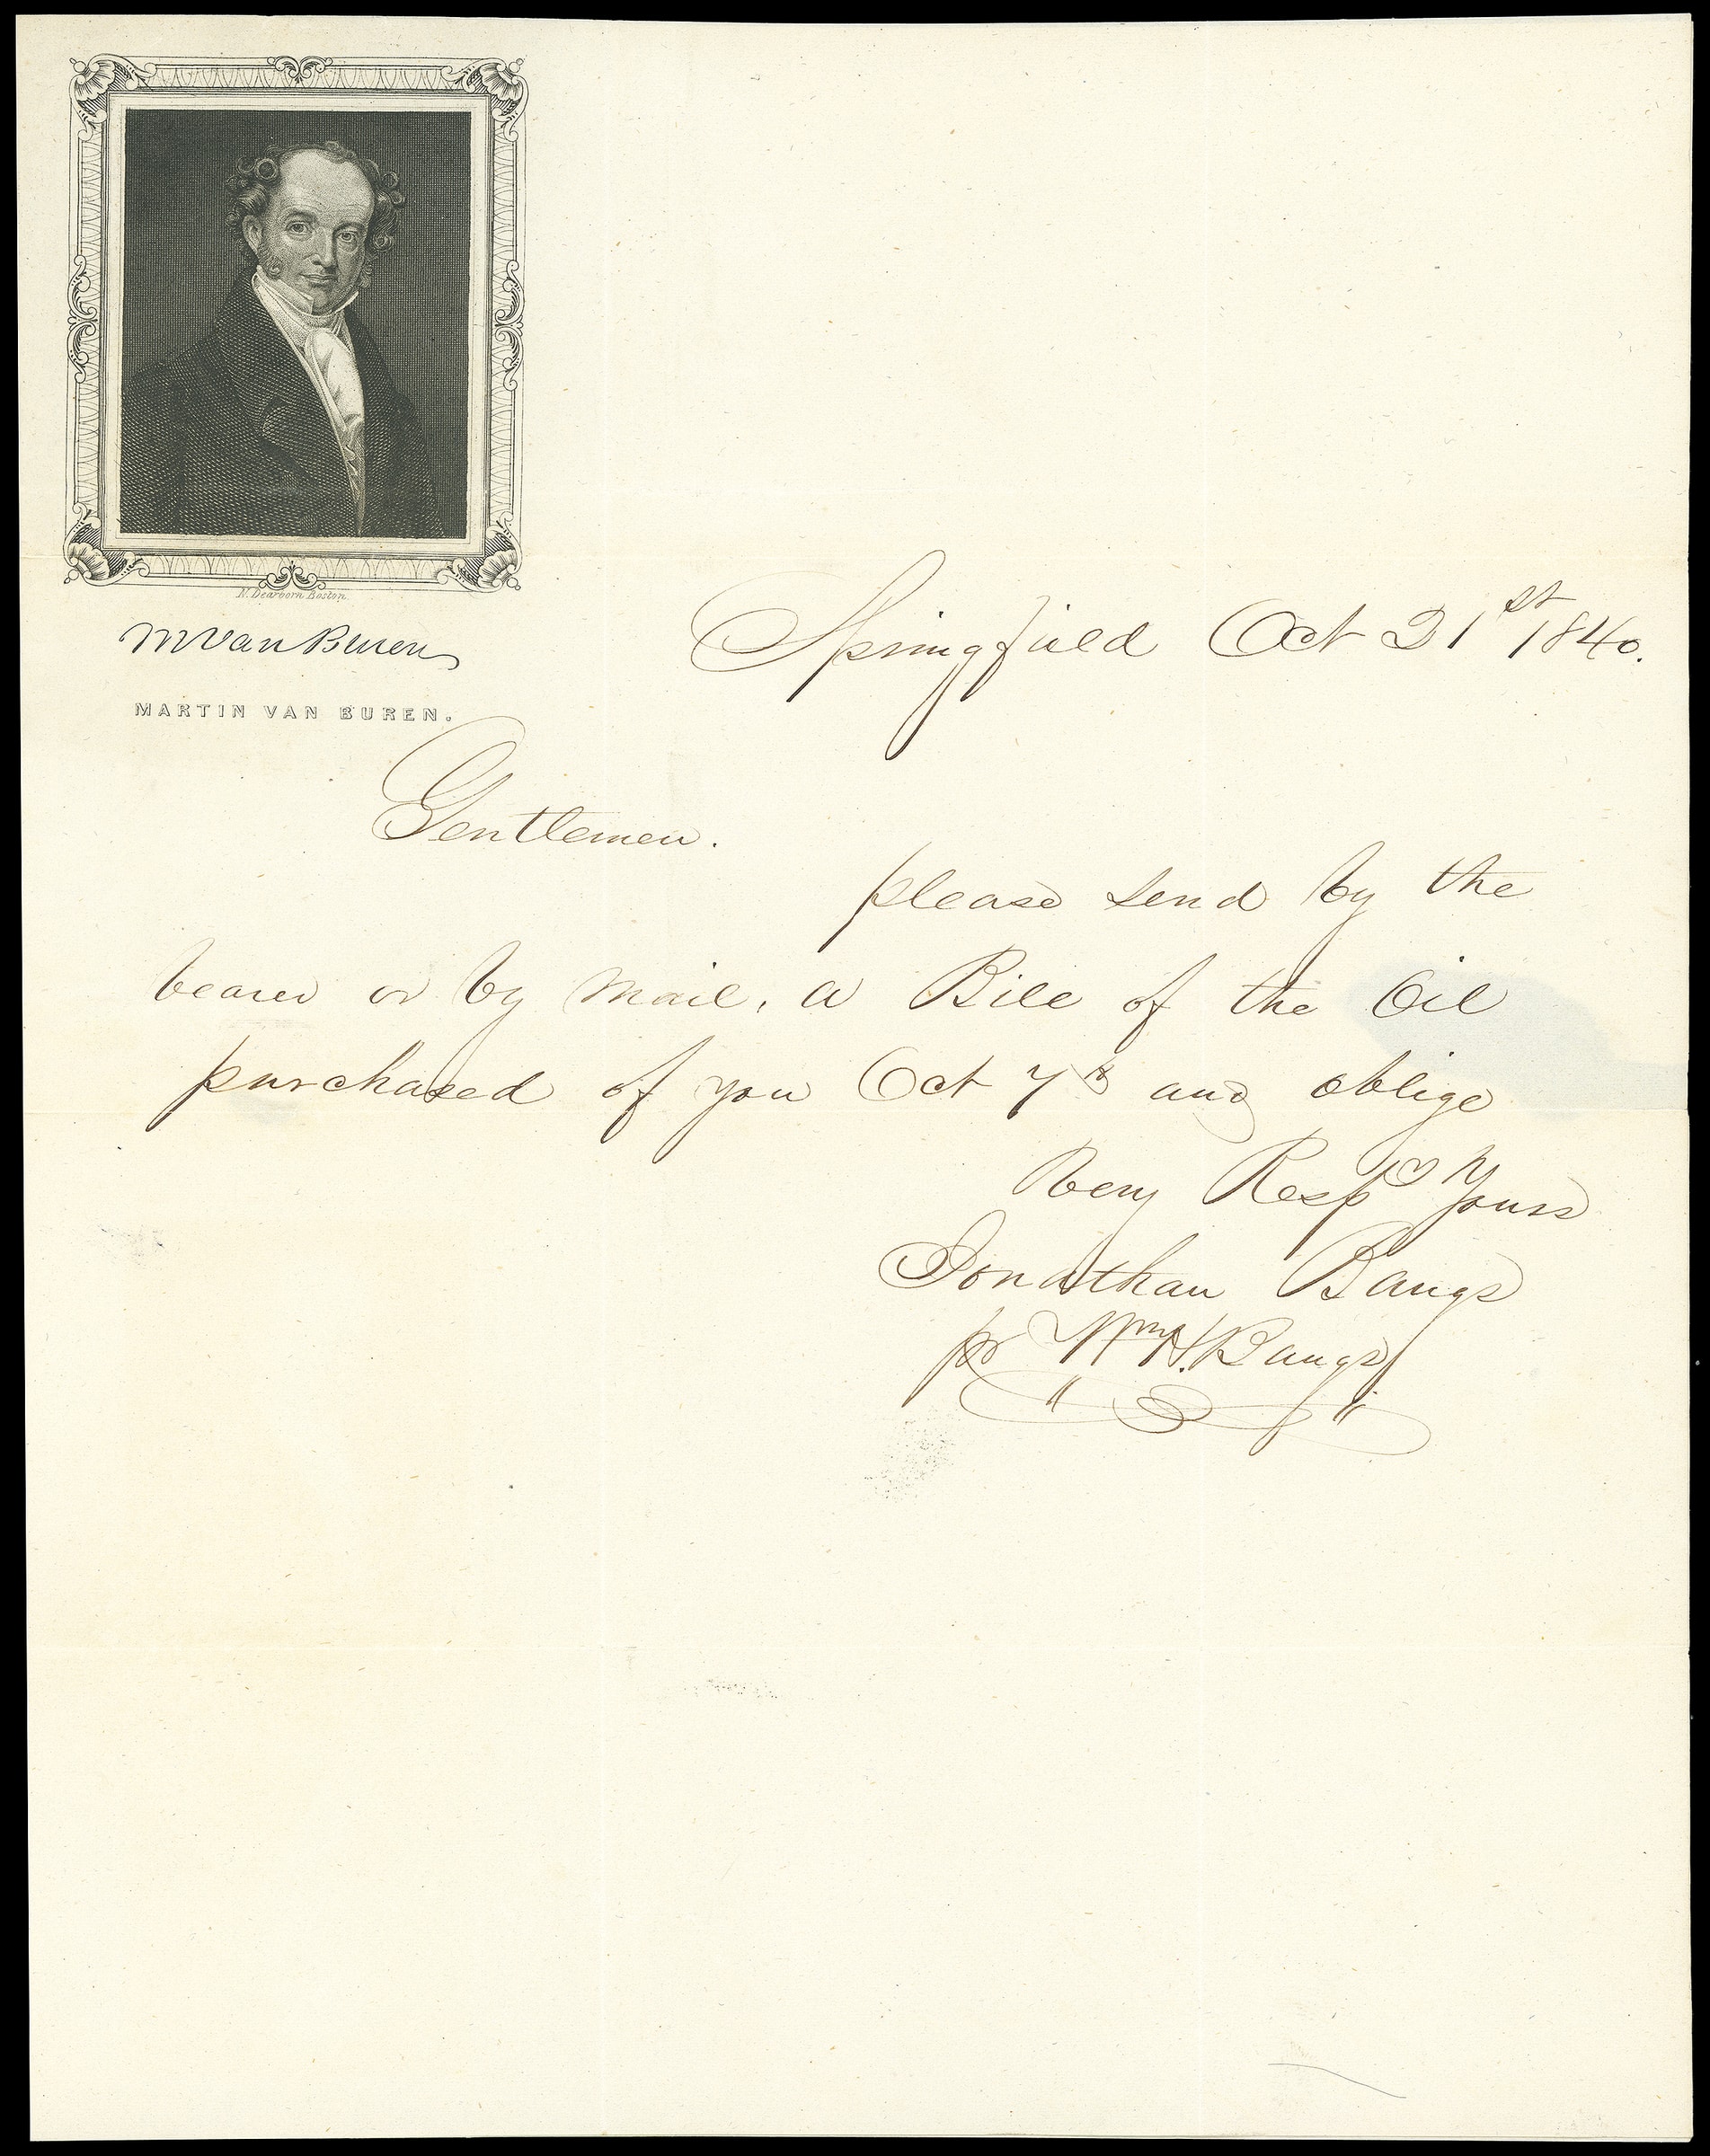 N. Dearborn Boston.
M Van Buren
MARTIN VAN BUREN.
Springfield Oct 21st 1840.
Gentlemen.
please send by the
bearer or by mail, a Bill of the Oil
purchased of you Oct 7th and oblige
Very Respy Yours
Jonathan Bangs
pr Wm H. Bangs